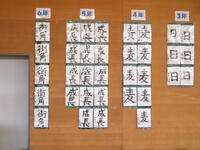 6年
街角
街角
街角
街角
街角
5年
成長
成長
成長
成長
成長
成長
成長
成長
成長
成長
成長
成長
成長
4年
麦
麦
麦
麦
麦
麦
麦
麦
麦
3年
日
日
日
日
日
日